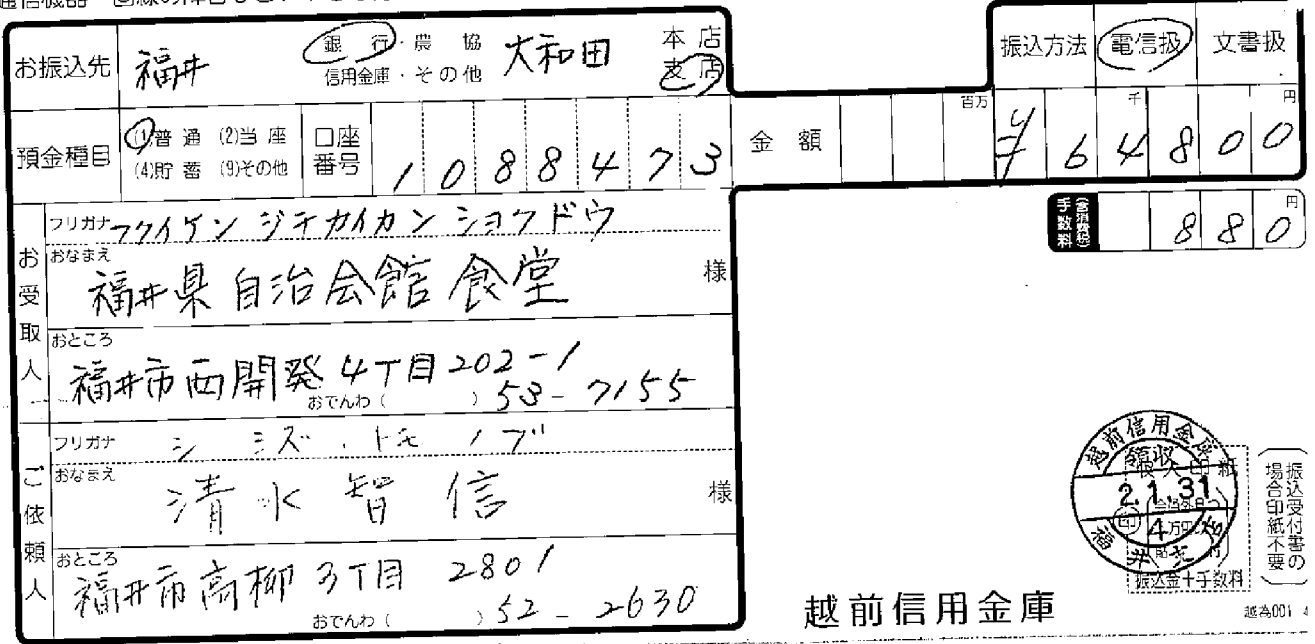 お振込先 福井 銀行・農協 信用金庫・その他 大和田 本店 支店
振込方法 電信扱 文書扱
預金種目 (1)普通 (2)当座 (4)貯蓄 (9)その他 口座番号 1088473 金額 百万 千 円 ¥64800
手数料 (含消費税) 円 880
お受取人
フリガナ フクイケン ジチカイカン ショクドウ
おなまえ 福井県自治会館 食堂 様
おところ 福井市西開発4丁目202-1
おでんわ ( ) 53-7155
ご依頼人
フリガナ シミズ.トモノブ
おなまえ 清水智信 様
おところ 福井市高柳3丁目 2801
おでんわ ( ) 52-2630
越前信用金庫
領収
2.1.31
福井
振込金+手数料
振込受付書の場合印紙不要
越前信用金庫
越為001 4